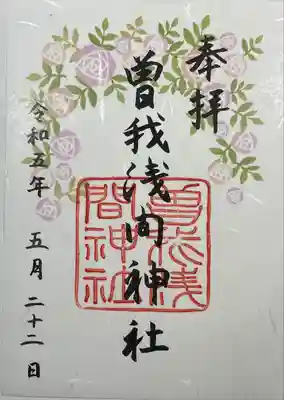 奉拝
曽我浅间神社
令和五年 五月二十二日
曽我浅
間神社